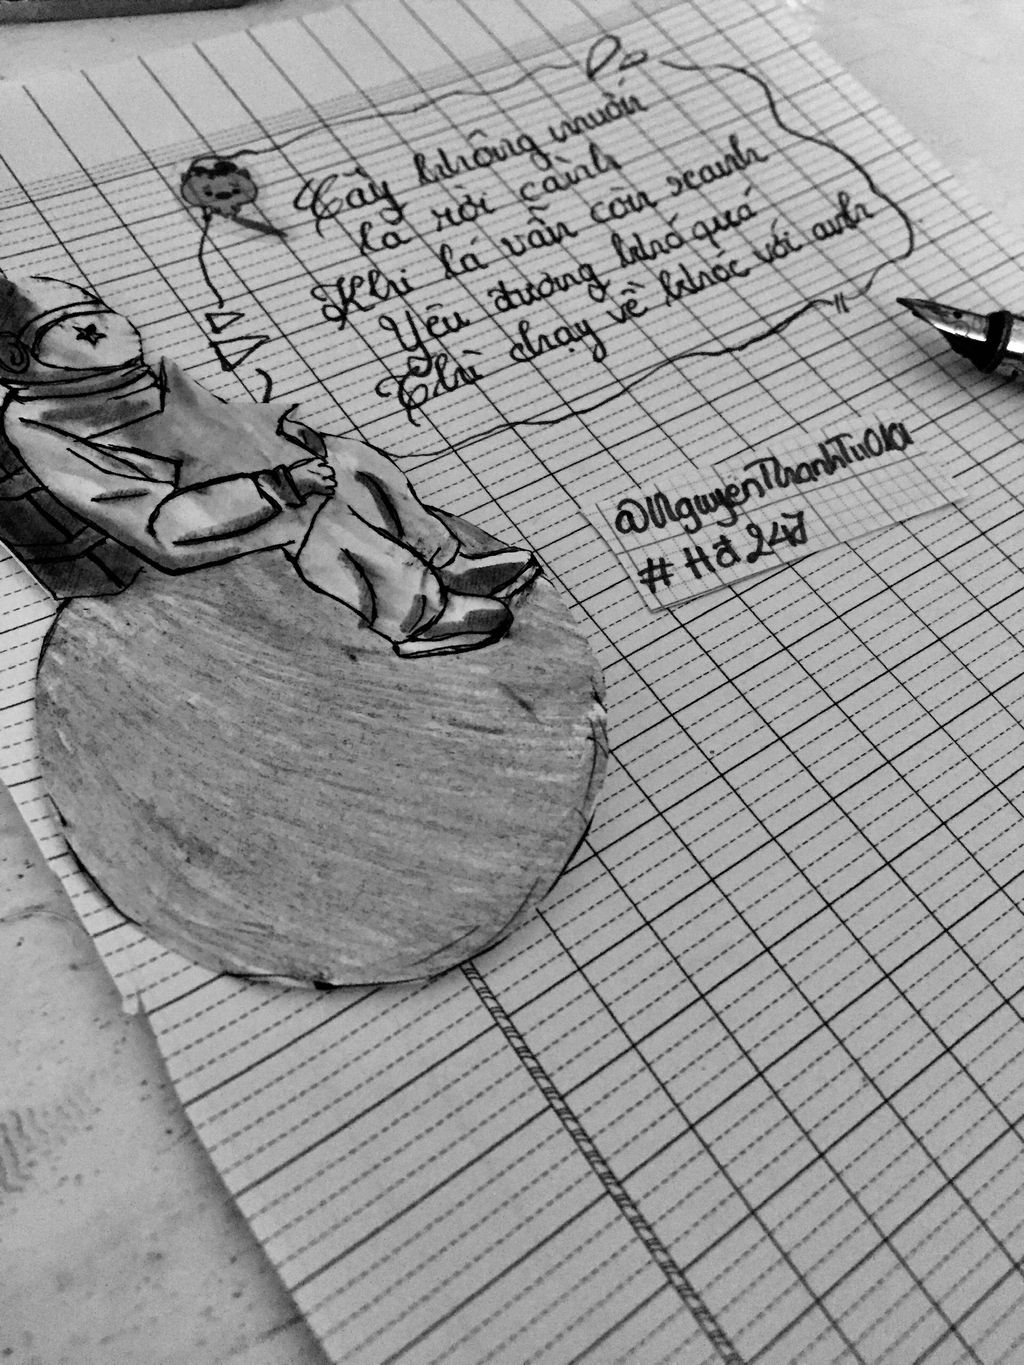 Cây không muốn
lá rời cành
Khi lá vẫn còn xanh
Yêu thương khó quá
Thì chạy về khóc với anh
@NguyenThanhTu0101
# Hđ 247